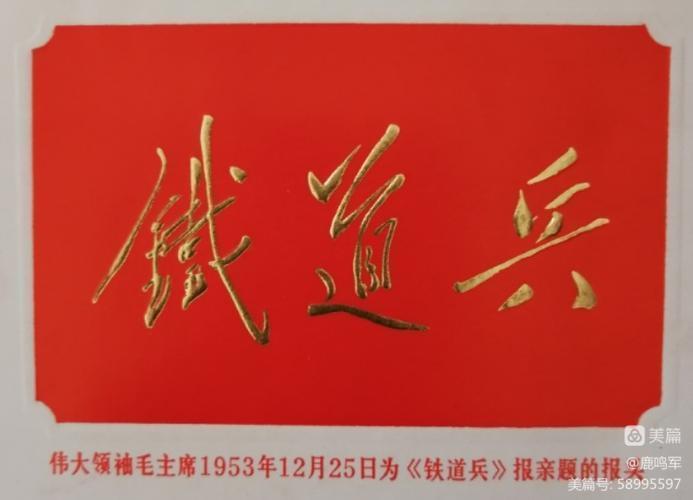 鐵道兵
伟大领袖毛主席1953年12月25日为《铁道兵》报亲题的报头
美篇
@鹿鸣军
美篇号: 58995597